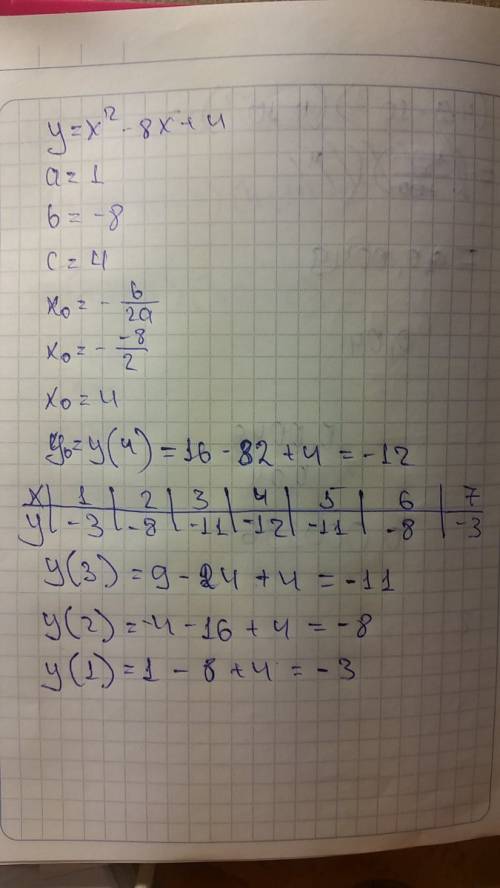 y = x² - 8x + 4
a = 1
b = -8
c = 4
x₀ = - b/2a
x₀ = - -8/2
x₀ = 4
y₀ = y(4) = 16 - 32 + 4 = -12
x | 1 | 2 | 3 | 4 | 5 | 6 | 7
y | -3 | -8 | -11 | -12 | -11 | -8 | -3
y(3) = 9 - 24 + 4 = -11
y(2) = 4 - 16 + 4 = -8
y(1) = 1 - 8 + 4 = -3